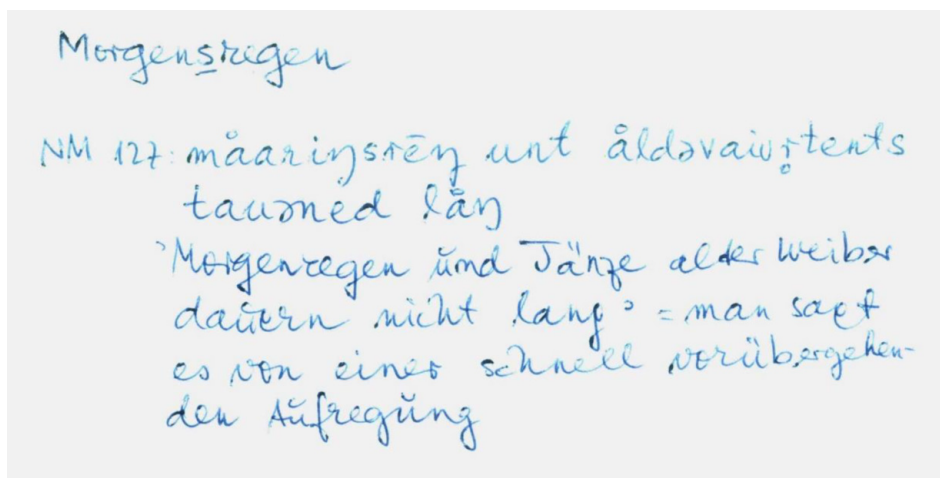 Morgensregen
NM 127: måariŋsrēŋ unt åldəvaiṛtents
tauəned låŋ
'Morgenregen und Tänze alter Weiber
dauern nicht lang' = man sagt
es von einer schnell vorübergehen-
den Aufregung